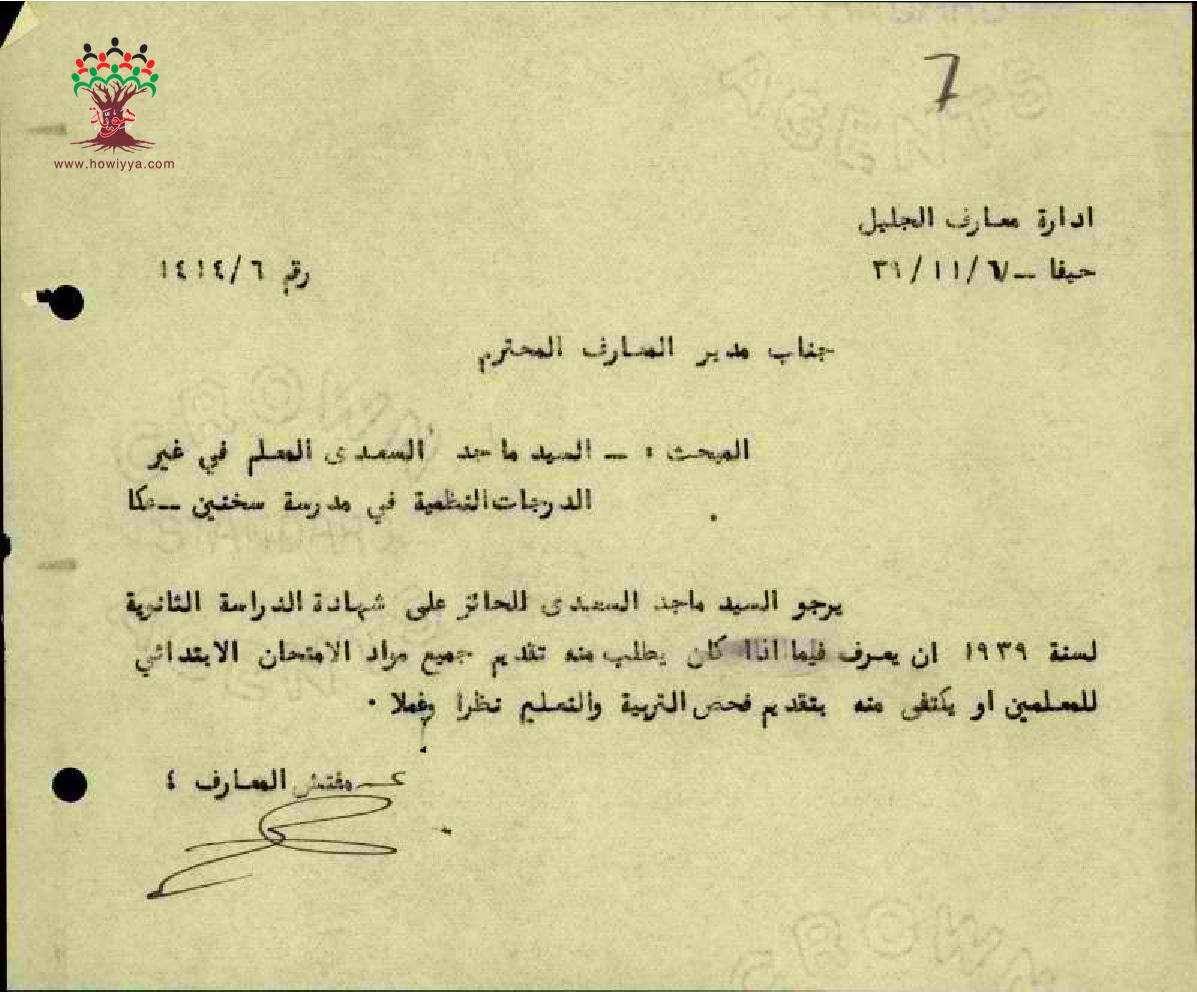 7
هوية
www.howiyya.com
ادارة معارف الجليل
حيفا – ٣٩/١١/٦ رقم ١٤١٤/٦
جناب مدير المعارف المحترم
المبحث : – السيد ماجد السعدى المعلم في غير
الدرجات النظمية في مدرسة سخنين – عكا
يرجو السيد ماجد السعدى الحائز على شهادة الدراسة الثانوية
لسنة ١٩٣٩ ان يعرف فيما اذا كان يطلب منه تقديم جميع مواد الامتحان الابتدائي
للمعلمين او يكتفى منه بتقديم فحص التربية والتعليم نظرا وعملا .
مفتش المعارف
CROWN
AGENTS
CROWN
STANDARD
AGENTS
CROWN